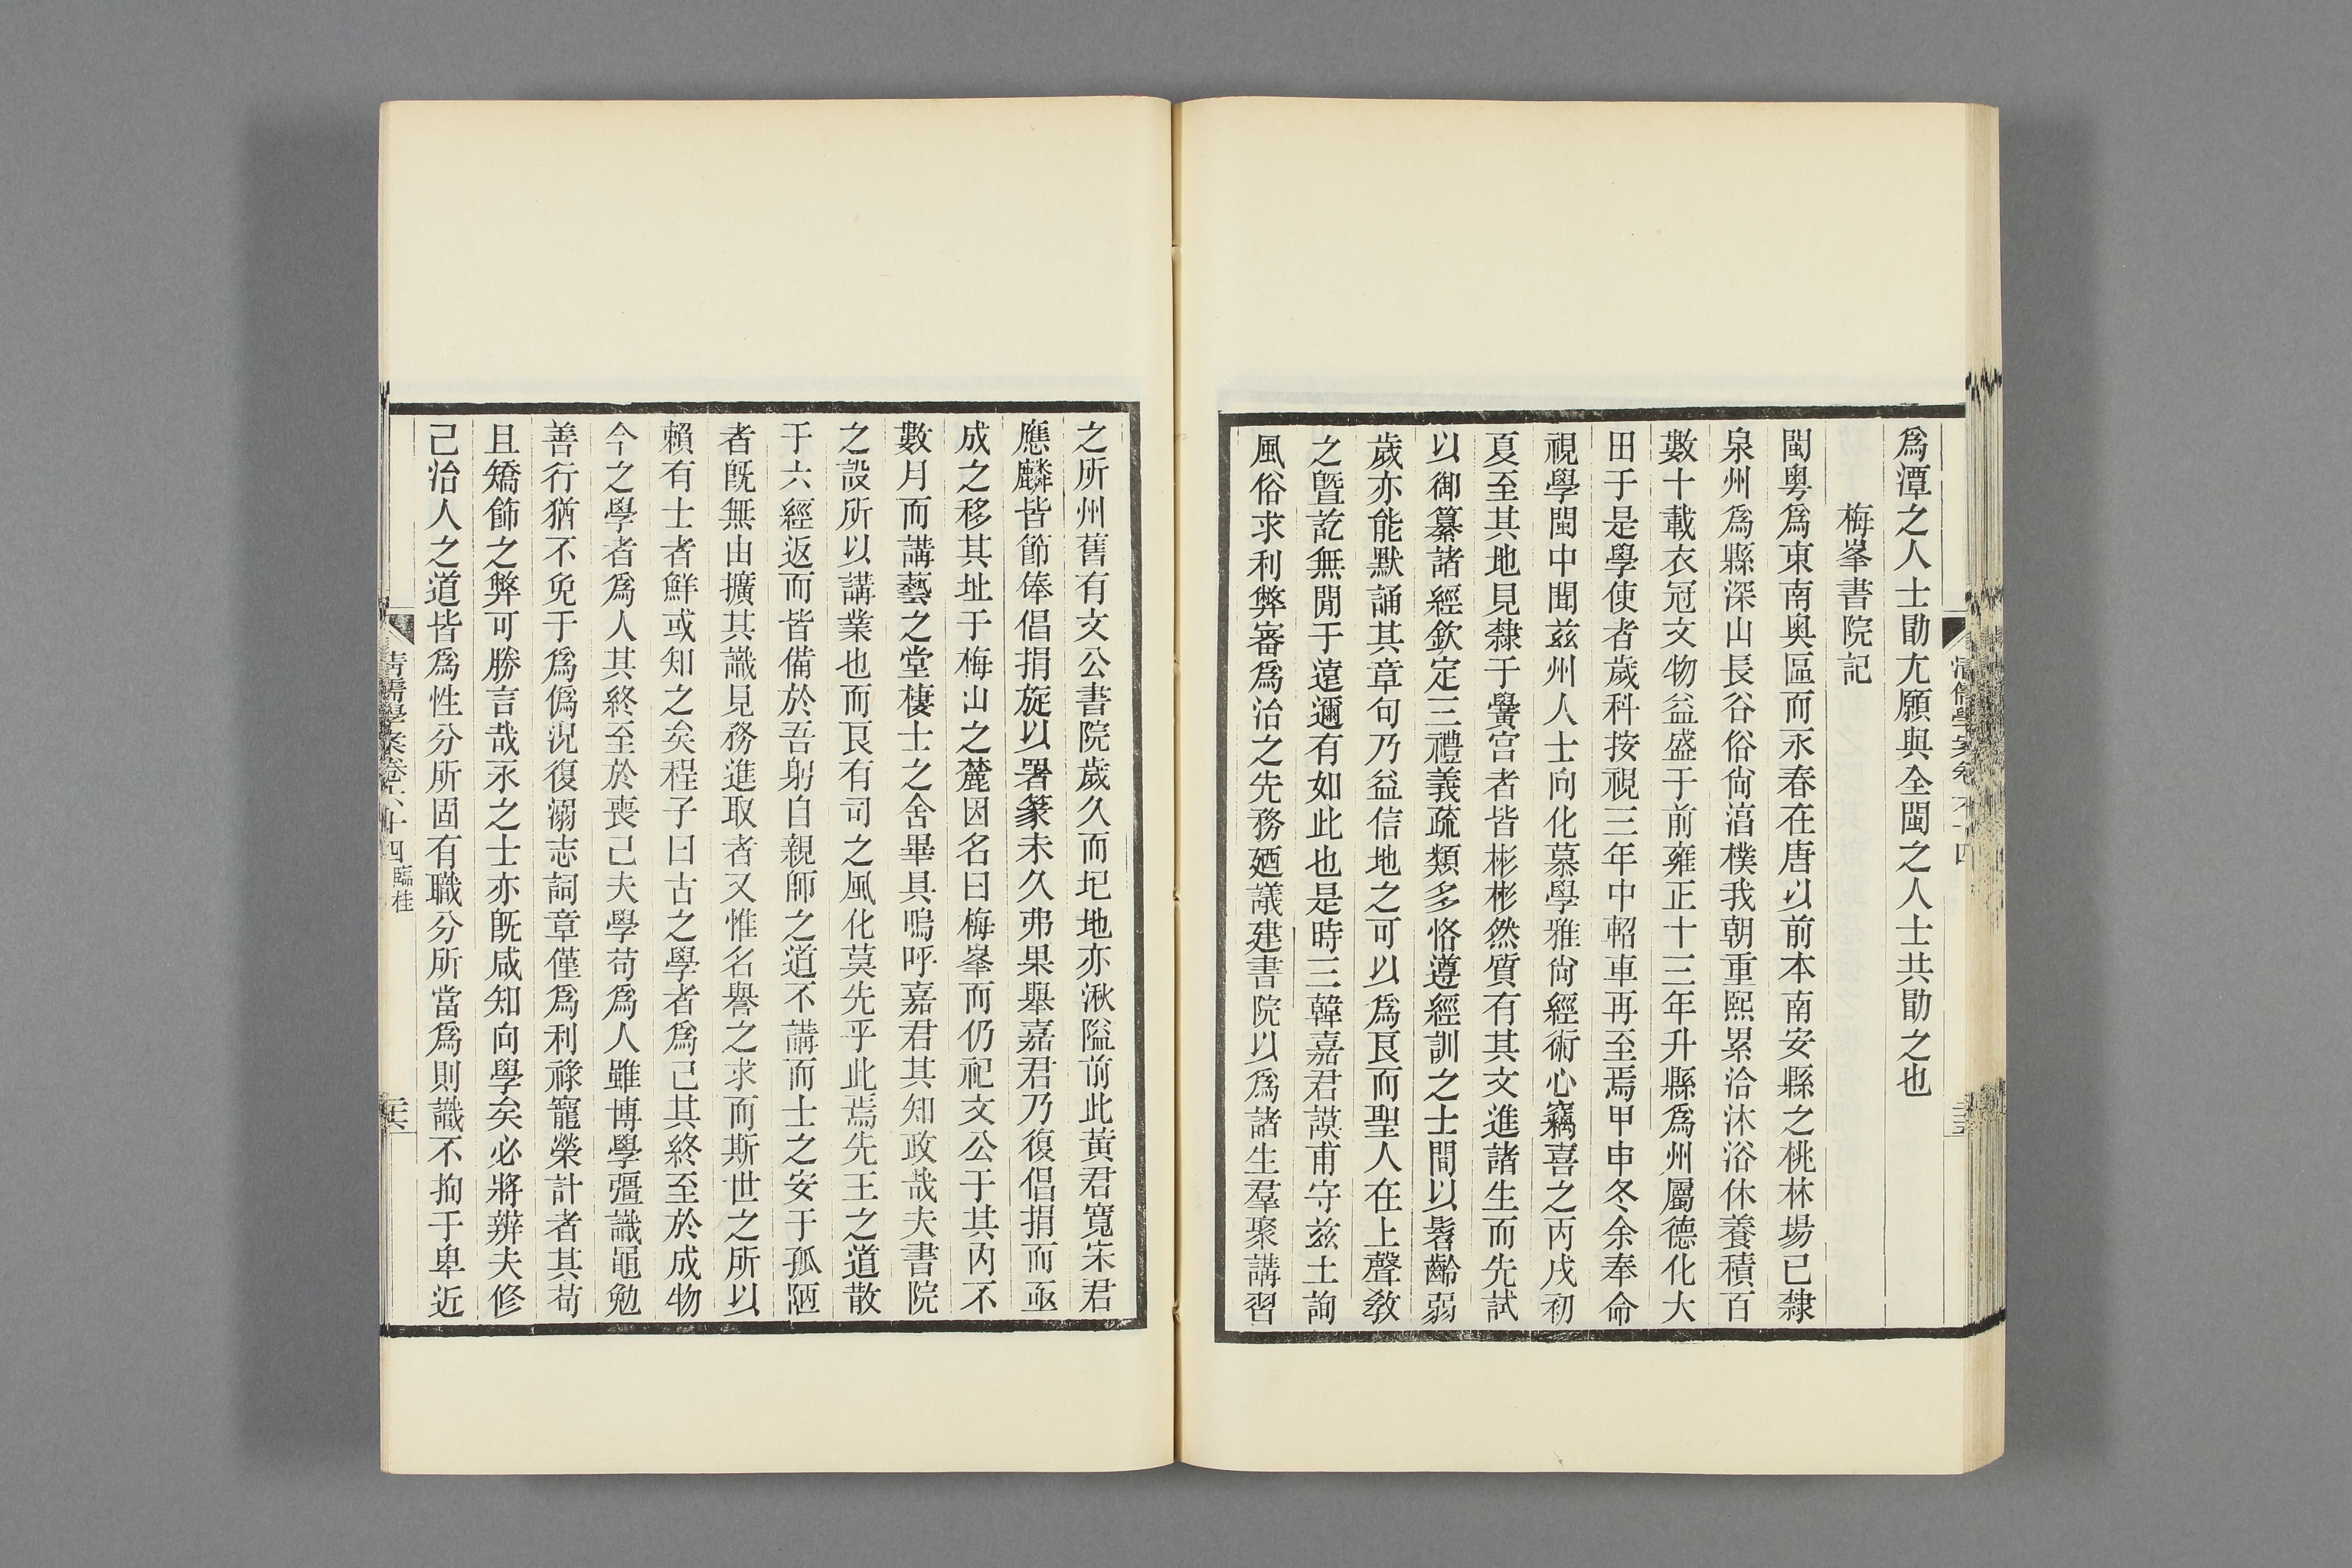 爲潭之人士勖尤願與全閩之人士共勖之也
梅峯書院記
閩粵爲東南奥區而永春在唐以前本南安縣之桃林場已隸
泉州爲縣深山長谷俗尙湻樸我朝重熙累洽沐浴休養積百
數十載衣冠文物益盛于前雍正十三年升縣爲州屬德化大
田于是學使者歲科按視三年中軺車再至焉甲申冬余奉命
視學閩中聞兹州人士向化慕學雅尙經術心竊喜之丙戌初
夏至其地見隸于黌宮者皆彬彬然質有其文進諸生而先試
以御纂諸經欽定三禮義疏類多恪遵經訓之士間以髫齡弱
歲亦能默誦其章句乃益信地之可以爲良而聖人在上聲敎
之曁訖無閒于遠邇有如此也是時三韓嘉君謨甫守兹土詢
風俗求利弊審爲治之先務廼議建書院以爲諸生羣聚講習
之所州舊有文公書院歲久而圮地亦湫隘前此黃君寬宋君
應麟皆節俸倡捐旋以署篆未久弗果舉嘉君乃復倡捐而亟
成之移其址于梅山之麓因名曰梅峯而仍祀文公于其內不
數月而講藝之堂棲士之舍畢具嗚呼嘉君其知政哉夫書院
之設所以講業也而良有司之風化莫先乎此焉先王之道散
于六經返而皆備於吾躬自親師之道不講而士之安于孤陋
者旣無由擴其識見務進取者又惟名譽之求而斯世之所以
賴有士者鮮或知之矣程子曰古之學者爲己其終至於成物
今之學者爲人其終至於喪己夫學苟爲人雖博學彊識黽勉
善行猶不免于爲僞況復溺志詞章僅爲利祿寵榮計者其苟
且矯飾之弊可勝言哉永之士亦旣咸知向學矣必將辨夫修
己治人之道皆爲性分所固有職分所當爲則識不拘于卑近
清儒學案卷六十四 臨桂